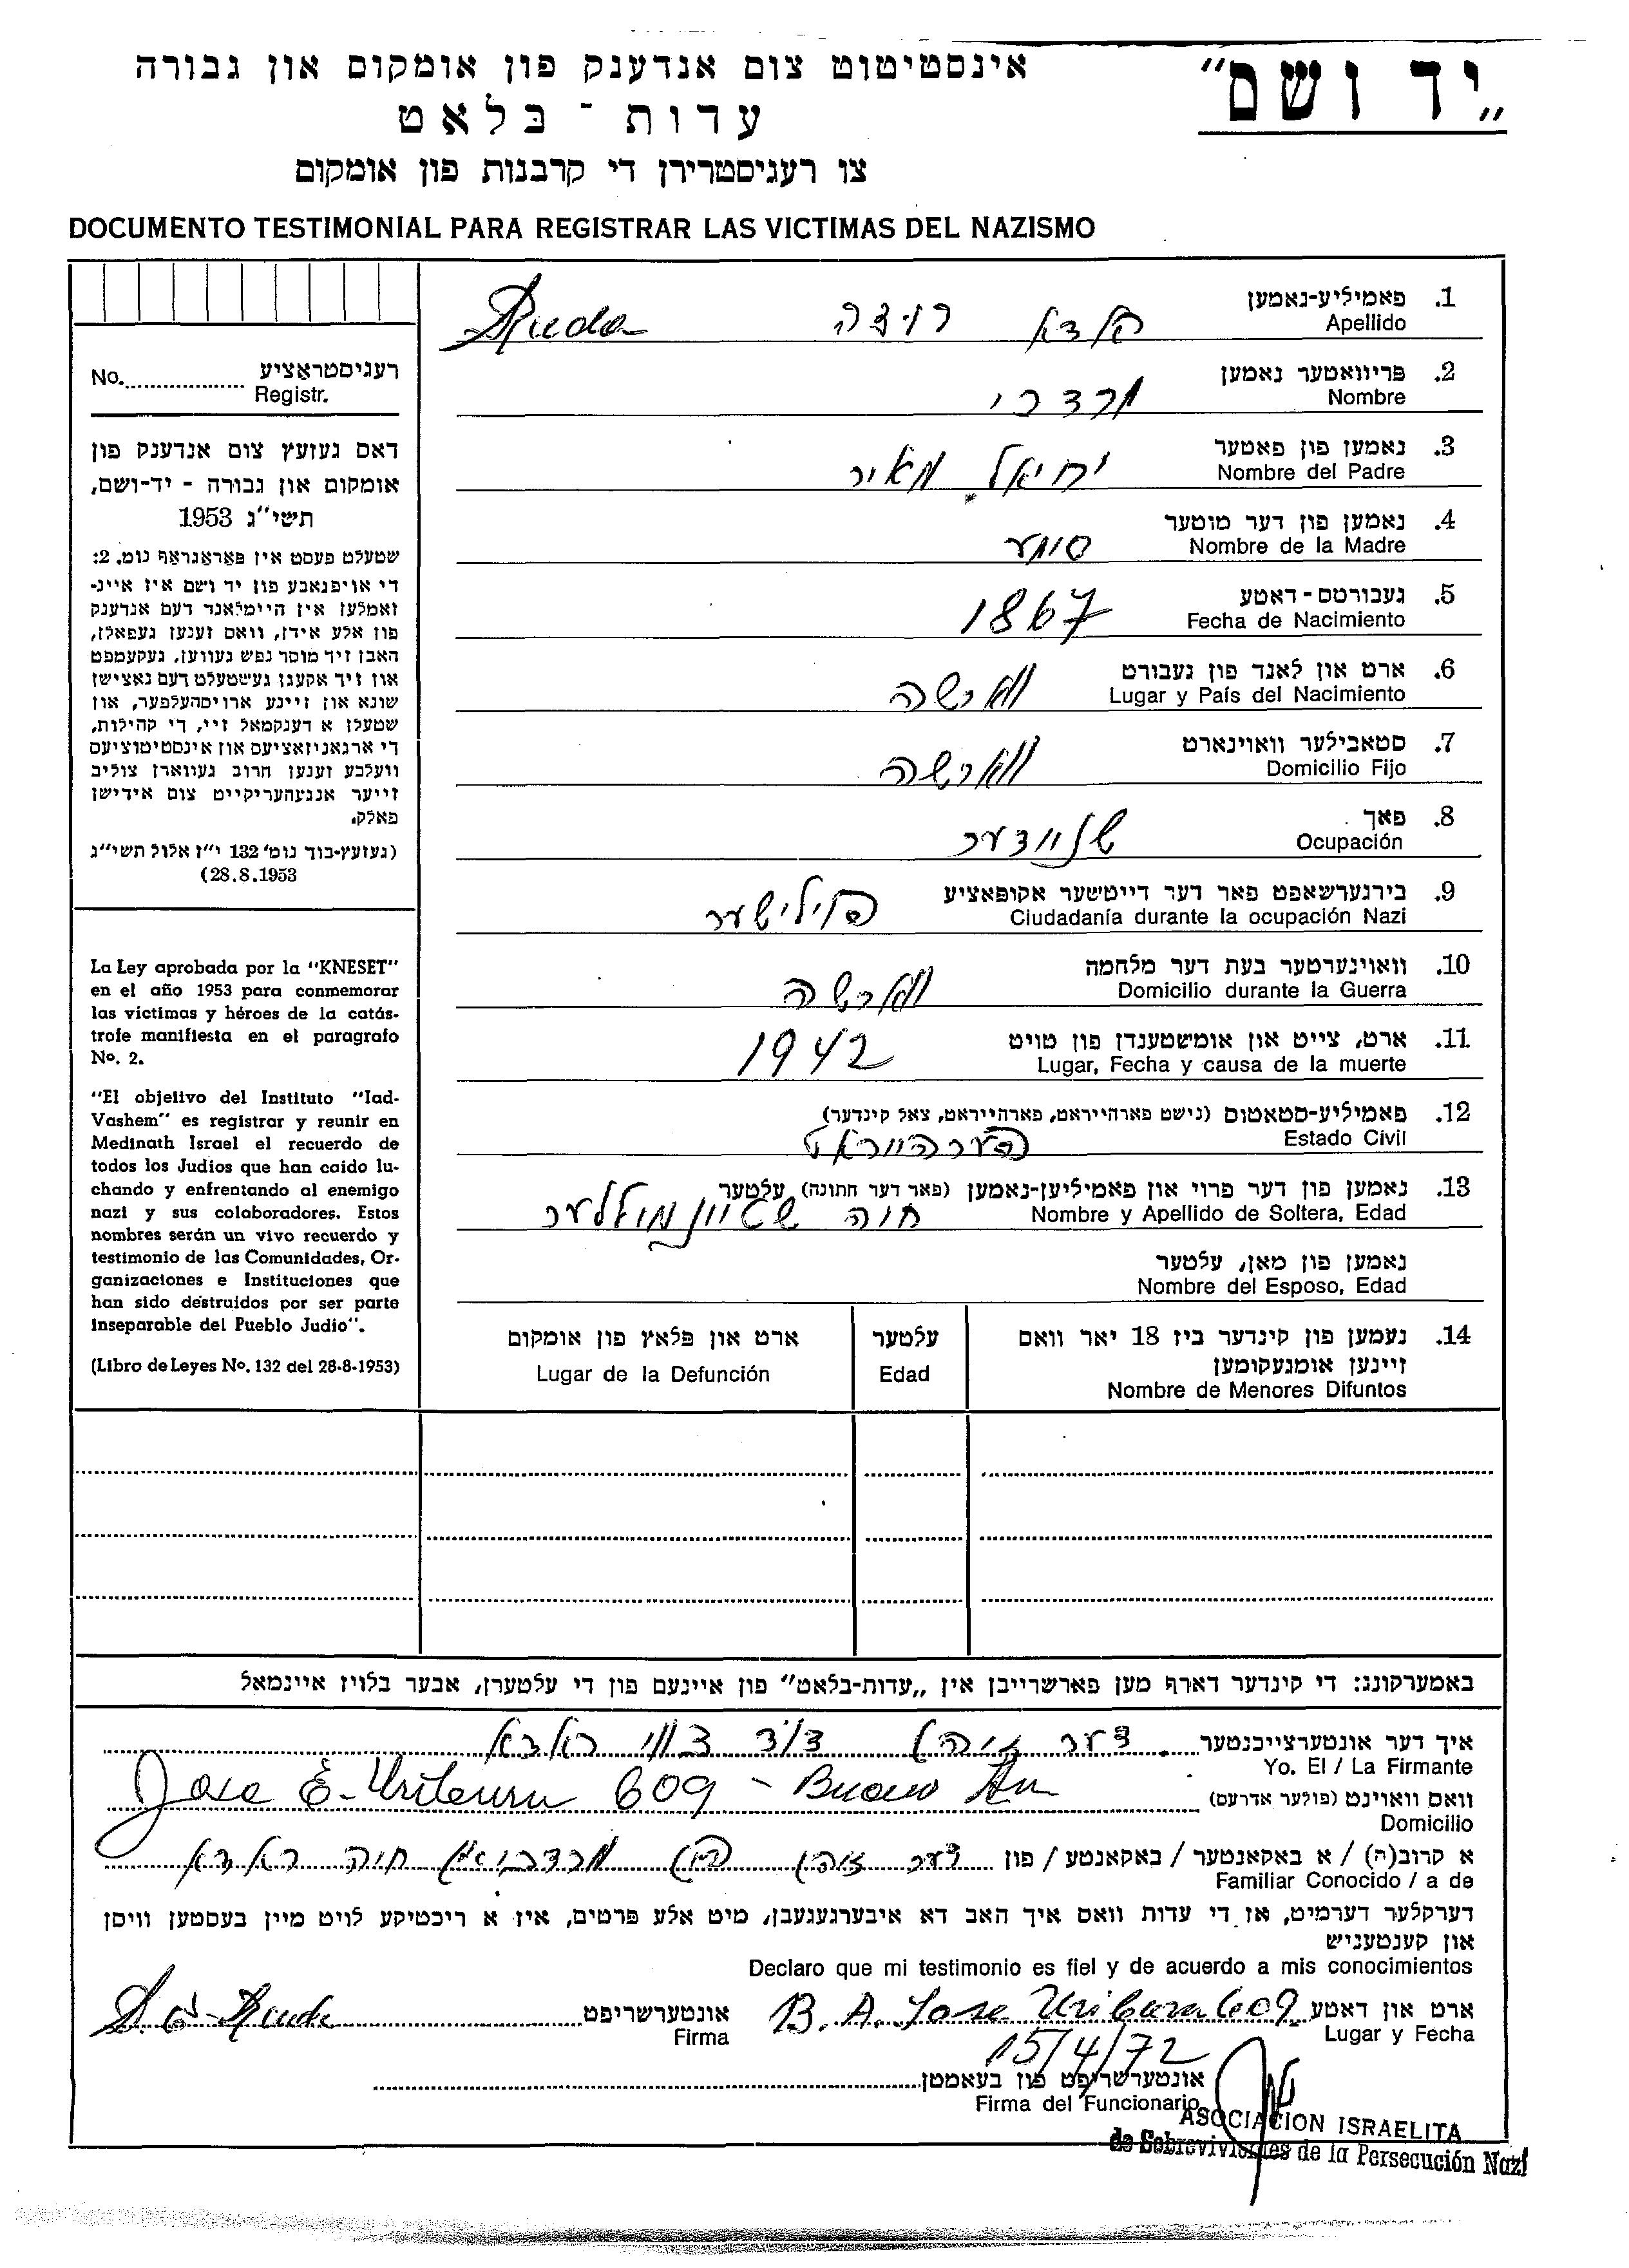 אינסטיטוט צום אנדענק פון אומקום און גבורה
„יד ושם”
עדות - בלאט
צו רעגיסטרירן די קרבנות פון אומקום
DOCUMENTO TESTIMONIAL PARA REGISTRAR LAS VICTIMAS DEL NAZISMO
רעגיסטראציע
No. Registr.
דאס געזעץ צום אנדענק פון
אומקום און גבורה - יד-ושם,
תשי"ג 1953
שטעלט פעסט אין פאראגראף נומ. 2:
די אויפגאבע פון יד ושם איז איינ-
זאמלען אין היימלאנד דעם אנדענק
פון אלע אידן, וואס זענען געפאלן,
האבן זיך מוסר נפש געווען, געקעמפט
און זיך אקעגן געשטעלט דעם נאצישן
שונא און זיינע ארויסהעלפער, און
שטעלן א דענקמאל זיי, די קהילות,
די ארגאניזאציעס און אינסטיטוציעס
וועלכע זענען חרוב געווארן צוליב
זייער אנגעהעריקייט צום אידישן
פאלק.
(געזעץ-בוך נומ' 132 י"ז אלול תשי"ג
28.8.1953)
La Ley aprobada por la "KNESET"
en el año 1953 para conmemorar
las victimas y héroes de la catás-
trofe manifiesta en el paragrafo
Nº. 2.
"El objetivo del Instituto "Iad-
Vashem" es registrar y reunir en
Medinath Israel el recuerdo de
todos los Judíos que han caído lu-
chando y enfrentando al enemigo
nazi y sus colaboradores. Estos
nombres serán un vivo recuerdo y
testimonio de las Comunidades, Or-
ganizaciones e Instituciones que
han sido destruídos por ser parte
inseparable del Pueblo Judío".
(Libro de Leyes Nº. 132 del 28-8-1953)
1. פאמיליע-נאמען רודה Ruda
Apellido
2. פריוואטער נאמען מרדכי
Nombre
3. נאמען פון פאטער יחיאל מאיר
Nombre del Padre
4. נאמען פון דער מוטער
Nombre de la Madre
5. געבורטס-דאטע 1867
Fecha de Nacimiento
6. ארט און לאנד פון געבורט ווארשה
Lugar y País del Nacimiento
7. סטאבילער וואוינארט ווארשה
Domicilio Fijo
8. פאך שניידער
Ocupación
9. בירגערשאפט פאר דער דייטשער אקופאציע פוילישער
Ciudadanía durante la ocupación Nazi
10. וואוינערטער בעת דער מלחמה ווארשה
Domicilio durante la Guerra
11. ארט, צייט און אומשטענדן פון טויט 1942
Lugar, Fecha y causa de la muerte
12. פאמיליע-סטאטוס (נישט פארהייראט, פארהייראט, צאל קינדער)
Estado Civil פערהייראט
13. נאמען פון דער פרוי און פאמיליען-נאמען (פאר דער חתונה) עלטער
Nombre y Apellido de Soltera, Edad חוה
נאמען פון מאן, עלטער
Nombre del Esposo, Edad
14. נעמען פון קינדער ביז 18 יאר וואס
זיינען אומגעקומען
Nombre de Menores Difuntos
עלטער
Edad
ארט און פלאץ פון אומקום
Lugar de la Defunción
באמערקונג: די קינדער דארף מען פארשרייבן אין „עדות-בלאט” פון איינעם פון די עלטערן, אבער בלויז איינמאל
איך דער אונטערצייכנטער דער דוד
Yo. El / La Firmante
וואס וואוינט (פולער אדרעס) Jose E. Uriburu 609 - Buenos
Domicilio
א קרוב(ה) / א באקאנטער / באקאנטע / פון דער זוהן פון
Familiar Conocido / a de
דערקלער דערמיט, אז די עדות וואס איך האב דא איבערגעגעבן, מיט אלע פרטים, איז א ריכטיקע לויט מיין בעסטען וויסן
און קענטעניש
Declaro que mi testimonio es fiel y de acuerdo a mis conocimientos
ארט און דאטע B. A. Jose Uriburu 609 אונטערשריפט Ruda
Lugar y Fecha Firma
15/4/72
אונטערשריפט פון בעאמטן
Firma del Funcionario
ASOCIACION ISRAELITA
de Sobrevivientes de la Persecución Nazi